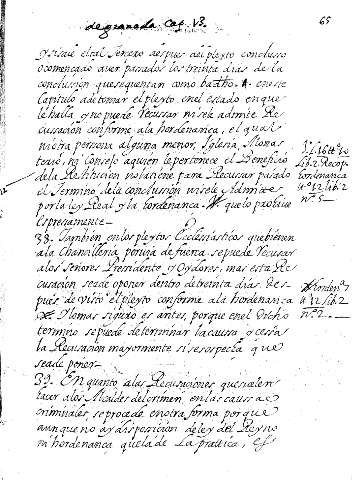 de granada Cap. V3. 65
y si sale el tal tercero despues del pleyto concluso
o comencado aver pasados los treinta dias de la
conclusion que se quentan como ba dho. en este
Capitulo a de tomar el pleyto en el estado en que
le halla y no puede Recussar ni se le admite Re
cussacion conforme a la hordenanca, el qual
ni otra persona alguna menor, Iglesia, Monas
terio, ni Consejo a quien le pertenece el Beneficio
de la Restitucion no la tiene para Recussar pasado
el termino de la conclusion ni se le Admite
por la ley Real y la hordenanca que lo prohive
espresamente
38. Tambien en los pleytos Ecclesiasticos que bienen
a la Chancilleria por via de fuerça se puede Recussar
a los Señores Presidente y Oydores, mas esta Re
cusacion se a de oponer dentro de treinta dias des
pues de visto el pleyto conforme a la hordenanca
y lo mas siguro es antes, porque en el dicho
termino se puede determinar la caussa y cessa
la Recusacion mayormente si se sospecta que
se a de poner
39. En quanto a las Recusaciones que suelen
tacer a los Alcaldes del crimen en las caussas
criminales se procede en otra forma porque
aunque no ay disposicion de ley del Reyno
ni hordenanca que la de La practica, es
lib. 2 Recop
hordenanca
lib. 2
nº 5
horden.
lib. 2
nº 2